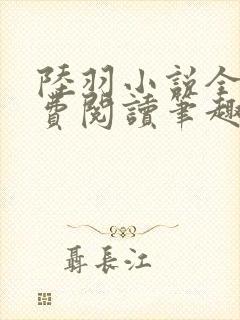 陸羽小説全
費閱讀筆趣
聶長江